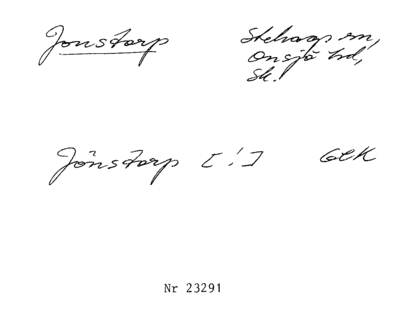 Jonstorp
Stehags sn,
Onsjö hd,
Sk.
Jönstorp [!] GEK
Nr 23291